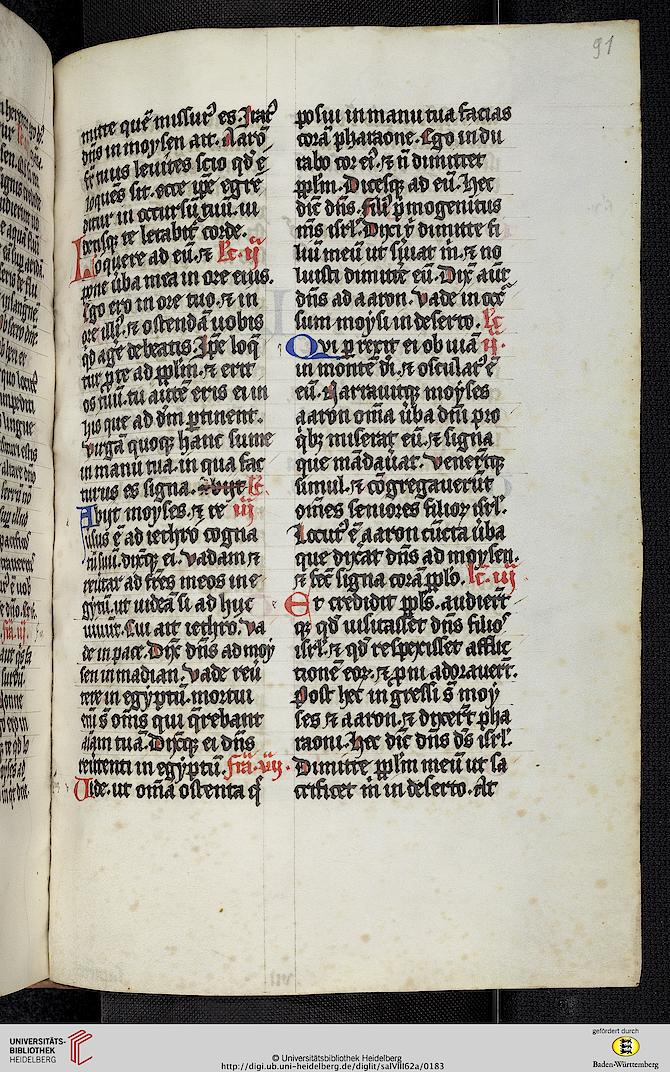 91
mitte quē missur᷒ es. Irat᷒
dn̄s in moysen ait. Aarō
fr̄ tuus leuites scio qd̓ e᷒
loquēs sit. ecce ip̄e egre
ditur in occursū tuū. ui
densq̄ te letabit᷒ corde.
Loquere ad eū. ⁊ Lc̄. ij
pone ūba mea in ore eius.
Ego ero in ore tuo. ⁊ in
ore illi᷒. ⁊ ostendā uobis
qd̓ agē debeatis. Ip̄e loq̄
tur p̱ te ad pp̄lm̄. ⁊ erit
os tuū. tu autē eris ei in
his que ad dm̄ p̱tinent.
Virgā quoq̄ hanc sume
in manu tua. in qua fac
turus es signa. Lc̄.
Abijt moyses. ⁊ re iij
ūsus ē ad iethro cogna
tū suū. dixitq̄ ei. Vadam ⁊
reūtar ad fr̄es meos in e
gyptū. ut uideā si ad huc
uiuūt. Cui ait iethro. Va
de in pace. Dix̄ dn̄s ad moy
sen in madian. Vade reū
tere in egyptū. mortui
eni s̄ om̄s qui q̄rebant
aīam tuā. Dixitq̄ ei dn̄s
reūtenti in egyptū. feria. vij.
Vide. ut om̄ia ostenta q̄
posui in manu tua facias
corā pharaone. Ego indu
rabo cor ei᷒. ⁊ n̄ dimittet
pp̄lm̄. Dicesq̄ ad eū. Hec
dic̄ dn̄s. Fili᷒ p̄mogenitus
m̄s isrl̄. Dixi t̄ dimitte fi
liū meū ut s̄uiat m̄. ⁊ no
luisti dimitte eū. Dix̄ aūt
dn̄s ad aaron. Vade in occ̄
sum moysi in deserto. Lc̄
Qvi p̱rexit ei obuiā ij.
in monte di. ⁊ osculat᷒ ē
eū. Narrauitq̄ moyses
aaron om̄ia ūba dn̄i pro
qb; miserat eū. ⁊ signa
que mādauat. Venerūtq̄
simul. ⁊ cōgregauerūt
om̄es seniores filior̄ isrl̄.
Locut᷒ ē aaron cūcta ūba
que dixāt dn̄s ad moysen.
⁊ fec̄ signa corā pp̄lo. Lc̄. iij
Et credidit pp̄ls. audiert̄
q̄ qd̓ uisitasset dn̄s filio᷒
isrl̄. ⁊ qd̓ respexisset afflic
tionē eor̄. ⁊ p̱ni adorauert̄.
Post hec ingressi s̄ moy
ses ⁊ aaron. ⁊ dixert̄ pha
raoni. Hec dic̄ dn̄s ds̄ isrl̄.
Dimitte pp̄lm̄ meū ut sa
crificet m̄ in deserto. At
UNIVERSITÄTS-
BIBLIOTHEK
HEIDELBERG
© Universitätsbibliothek Heidelberg
http://digi.ub.uni-heidelberg.de/diglit/salVIII62a/0183
gefördert durch
Baden-Württemberg